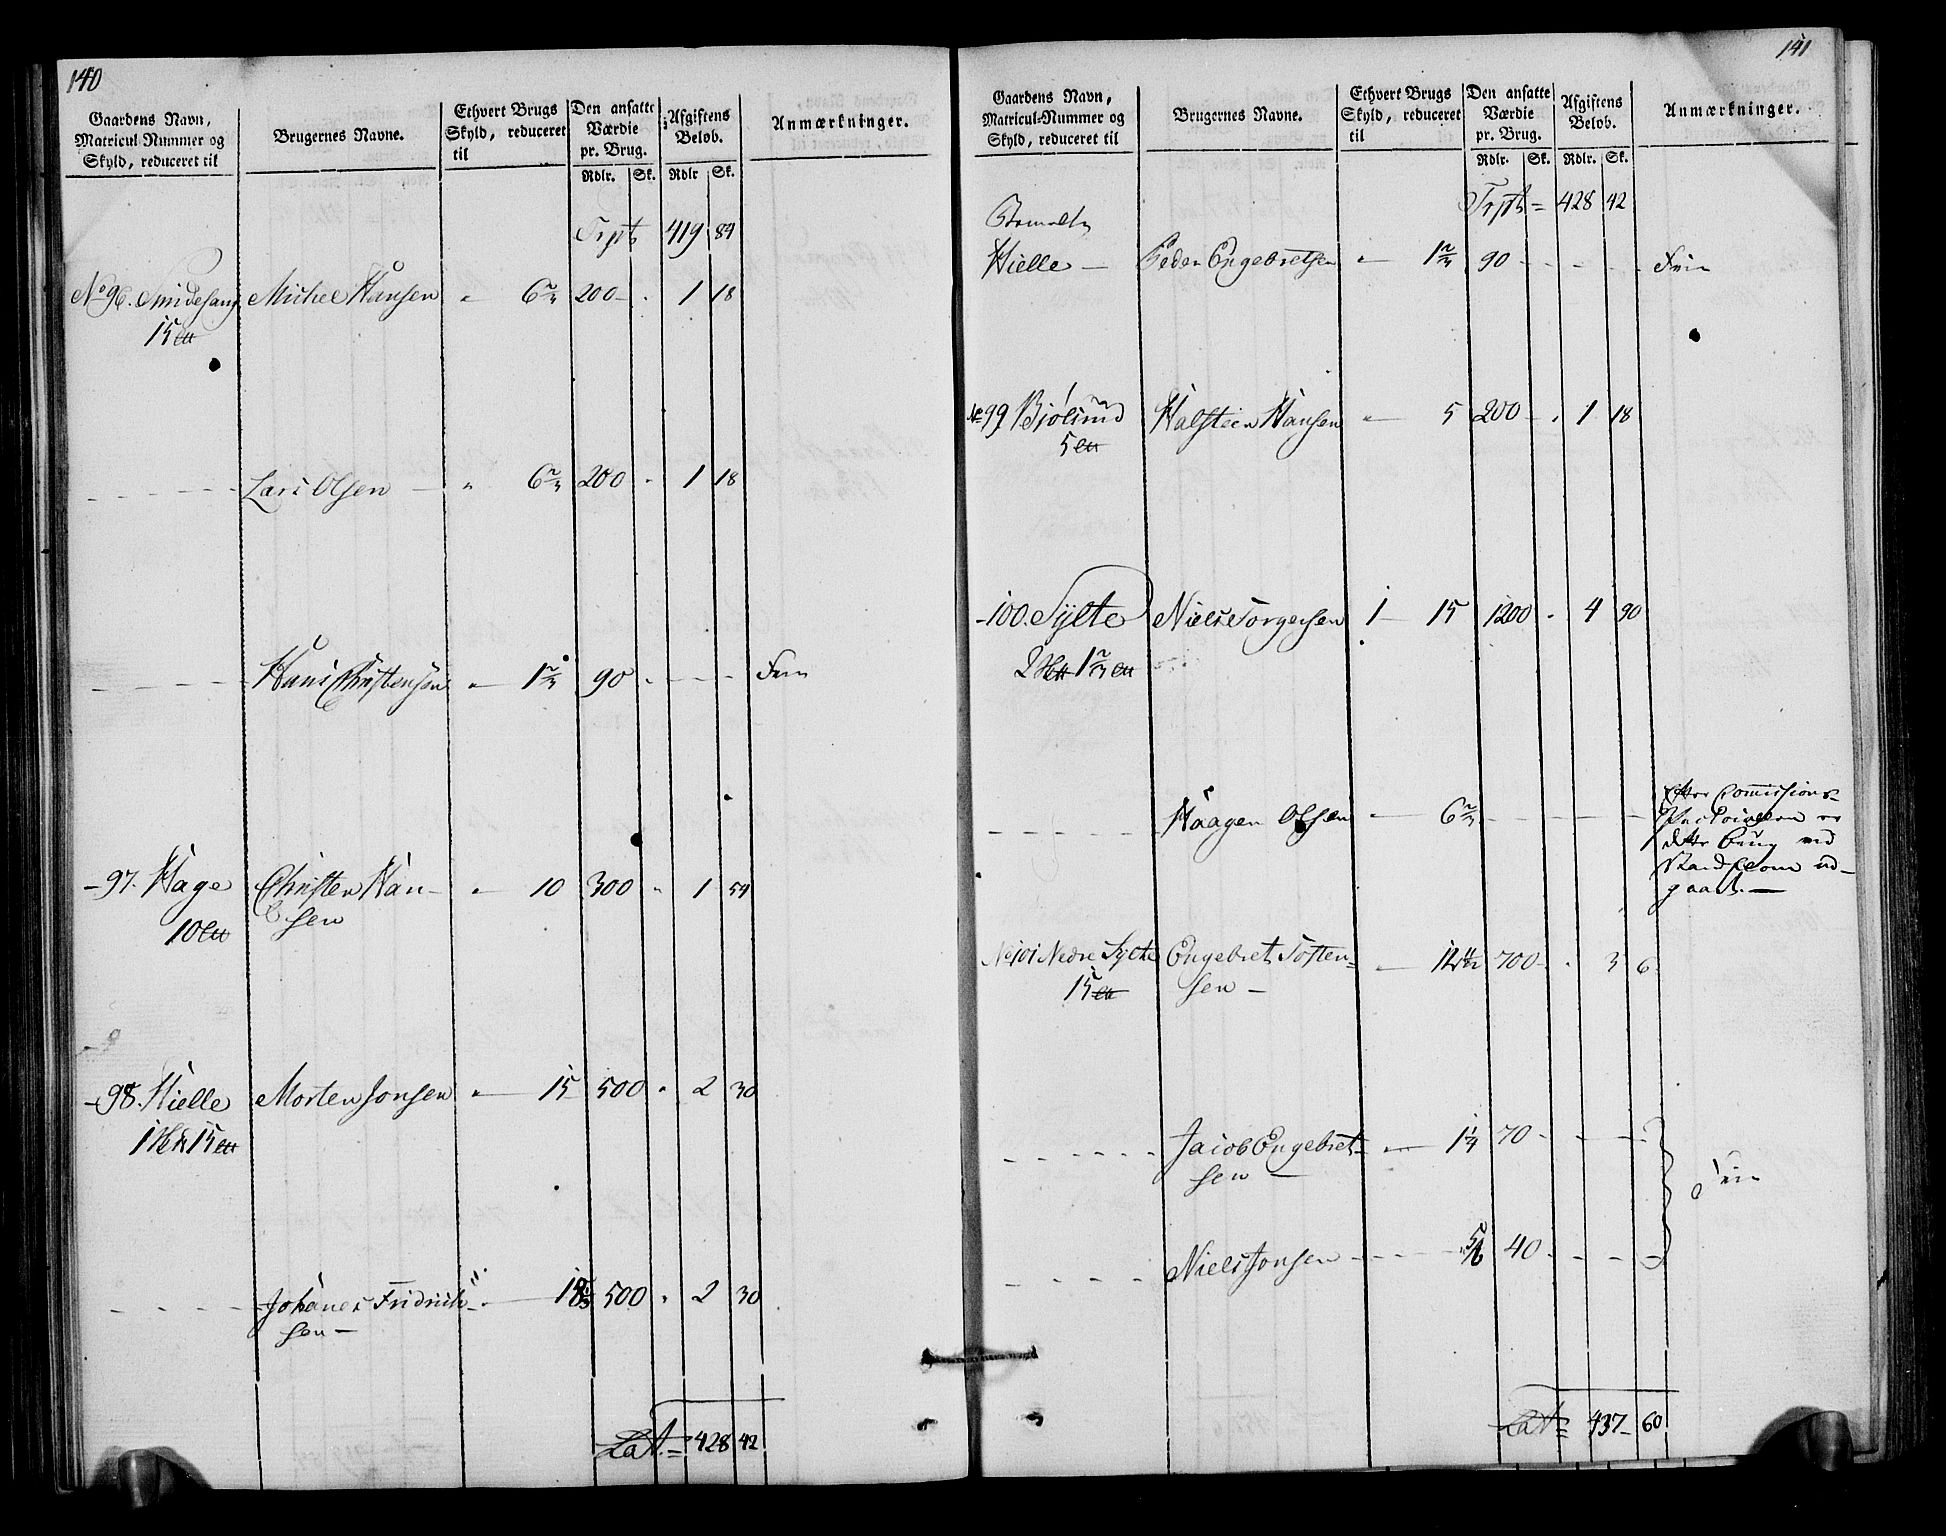 140
Gaardens Navn, Matricul-Nummer og Skyld, reduceret til
Brugernes Navne.
Ethvert Brugs Skyld, reduceret til
Den ansatte Værdie pr. Brug.
Afgiftens Beløb.
Anmærkninger.
Rdlr. Sk. Rdlr Sk.
Trpt 419 84
No 96. Smidesang Michel Hansen " 6 2/3 200 - 1 18
15
Lars Olsen - " 6 2/3 200 - 1 18
Hans Christensen " 1 2/3 90 - - - - Frie
- 97. Hage Christen Han- " 10 300 " 1 54
10 sen
- 98. Hielle Morten Jonsen " 15 500 " 2 30
1 15
Johanes Fridrich- " 18 500 " 2 30
sen -
Lat. = 428 42
141
Gaardens Navn, Matricul-Nummer og Skyld, reduceret til
Brugernes Navne.
Ethvert Brugs Skyld, reduceret til
Den ansatte Værdie pr. Brug.
Afgiftens Beløb.
Anmærkninger.
Rdlr. Sk. Rdlr. Sk.
Trpt = 428 42
Hielle - Peder Engebretsen " 1 2/3 90 - - - - Frie
No 99 Bjølsund Halsteen Hansen " 5 200 - " 1 18
5
- 100. Sylte Niels Torgersen 1 - 15 1200 - 4 90
2 1 2/3
Haagen Olsen " 6 2/3 - - - - Efter Commissions-
er
dette Brug ved
Skandsom ud-
gaaet. -
No 101 Nedre Sylte Engebret Tosten= " 12 1/2 700 - " 3 6
15 sen -
Jacob Engebret- " 1 1/4 70 - - - -
sen - Frie
Niels Jonsen - - - - 5/6 40 - - - -
Lat = 437 - 60